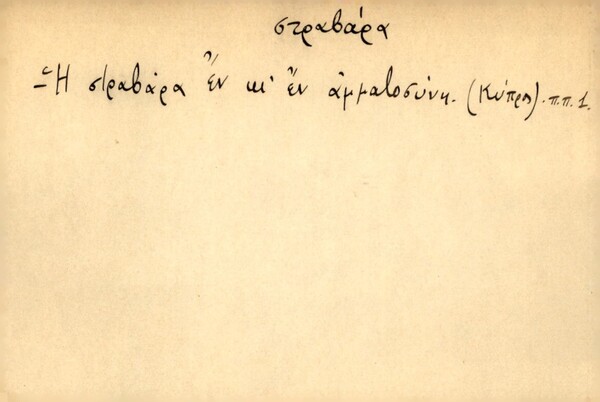 στραβάρα
– Ἡ στραβάρα ἒν κι' ἒν ἀμματοσύνη. (Κύπρος). π.π. 1.